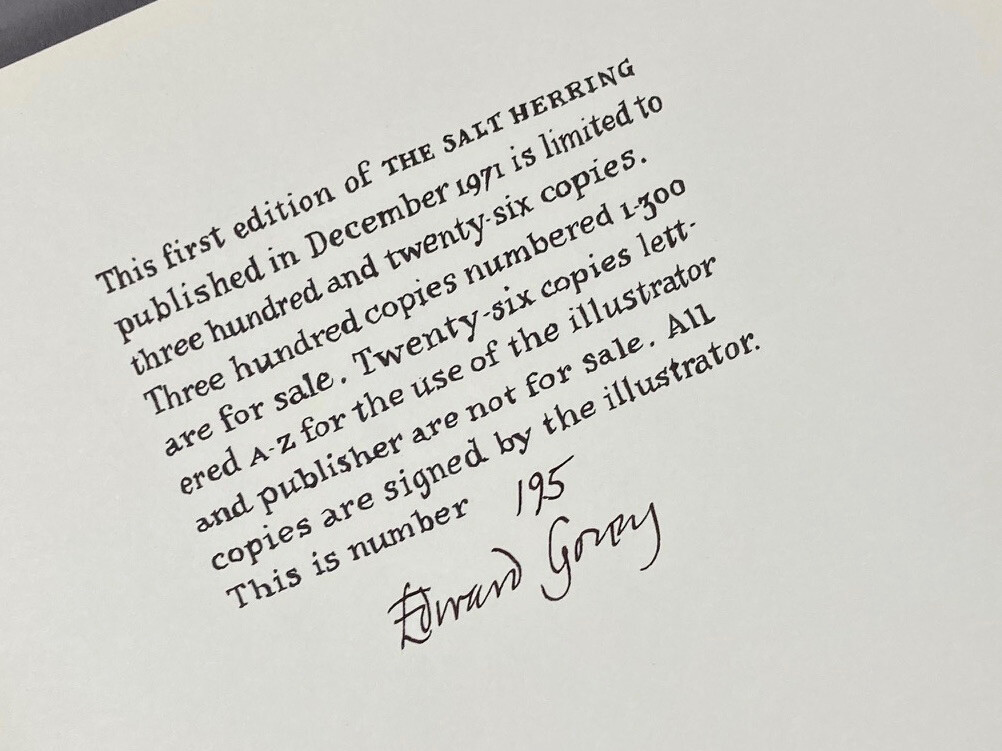 This first edition of THE SALT HERRING
published in December 1971 is limited to
three hundred and twenty-six copies.
Three hundred copies numbered 1-300
are for sale. Twenty-six copies lett-
ered A-Z for the use of the illustrator
and publisher are not for sale. All
copies are signed by the illustrator.
This is number 195
Edward Gorey